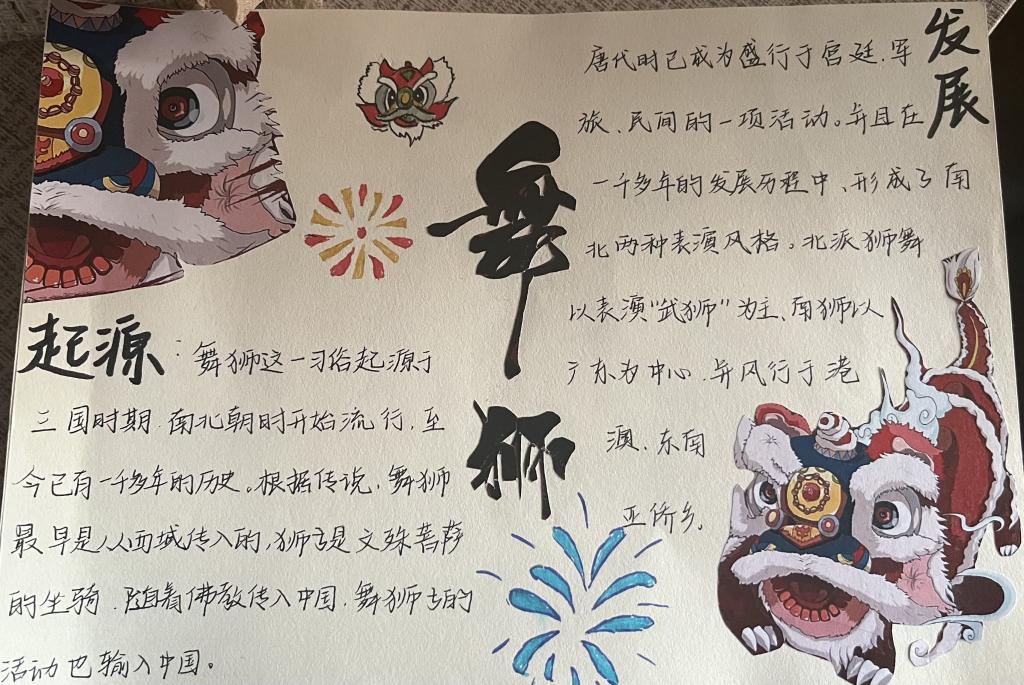 舞狮
起源:舞狮这一习俗起源于
三国时期.南北朝时开始流行,至
今已有一千多年的历史。根据传说,舞狮
最早是从西域传入的,狮子是文殊菩萨
的坐骑.随着佛教传入中国.舞狮子的
活动也输入中国。
发展
唐代时已成为盛行于宫廷、军
旅、民间的一项活动。并且在
一千多年的发展历程中、形成了南
北两种表演风格。北派狮舞
以表演"武狮"为主、南狮以
广东为中心.并风行于港
澳、东南
亚侨乡.